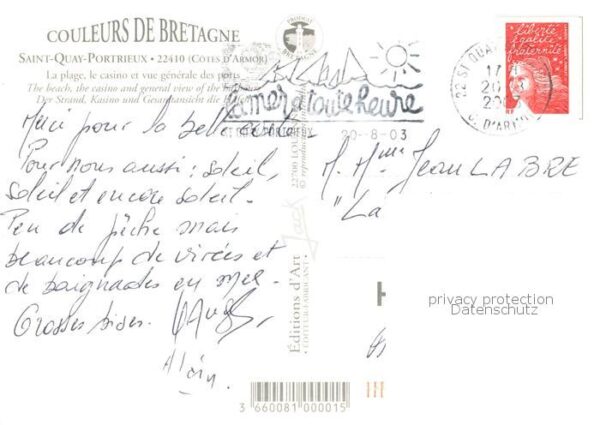 COULEURS DE BRETAGNE
SAINT-QUAY-PORTRIEUX • 22410 (CÔTES D'ARMOR)
La plage, le casino et vue générale des ports
The beach, the casino and general view of the
Der Strand, Kasino und Gesamtansicht die
PRODUIT
EN BRETAGNE
la mer a toute heure
ST QUAY PORTRIEUX 20-8-03
22 ST QUAY
17 H
20
D'ARMOR
liberté
égalité
fraternité
RF
Merci pour la belle carte.
Pour nous aussi : soleil,
soleil et encore soleil.
Peu de pêche mais
beaucoup de virées et
de baignades en mer.
Grosses bises.
Alain.
M. Mme Jean LABRE
"La
Jack
Éditions d'Art
• ÉDITEUR-FABRICANT •
privacy protection
Datenschutz
3 660081 000015